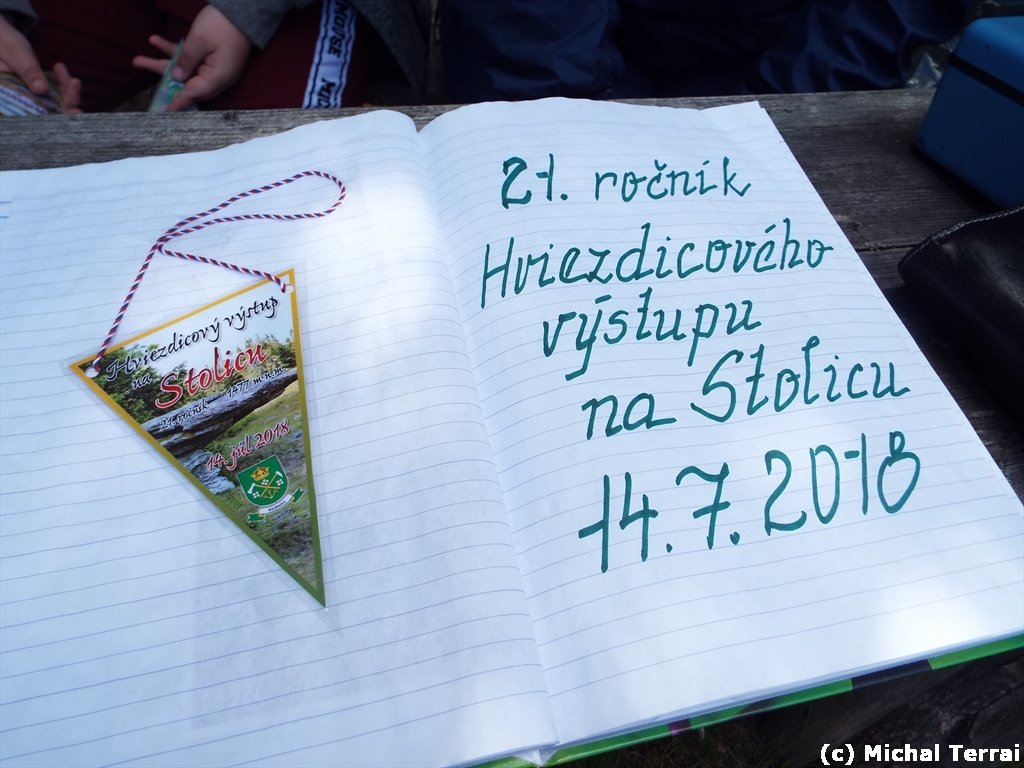 Hviezdicový výstup
na Stolicu
21. ročník 1477 m n.m.
14. júl 2018
21. ročník
Hviezdicového
výstupu
na Stolicu
14.7.2018
(c) Michal Terrai